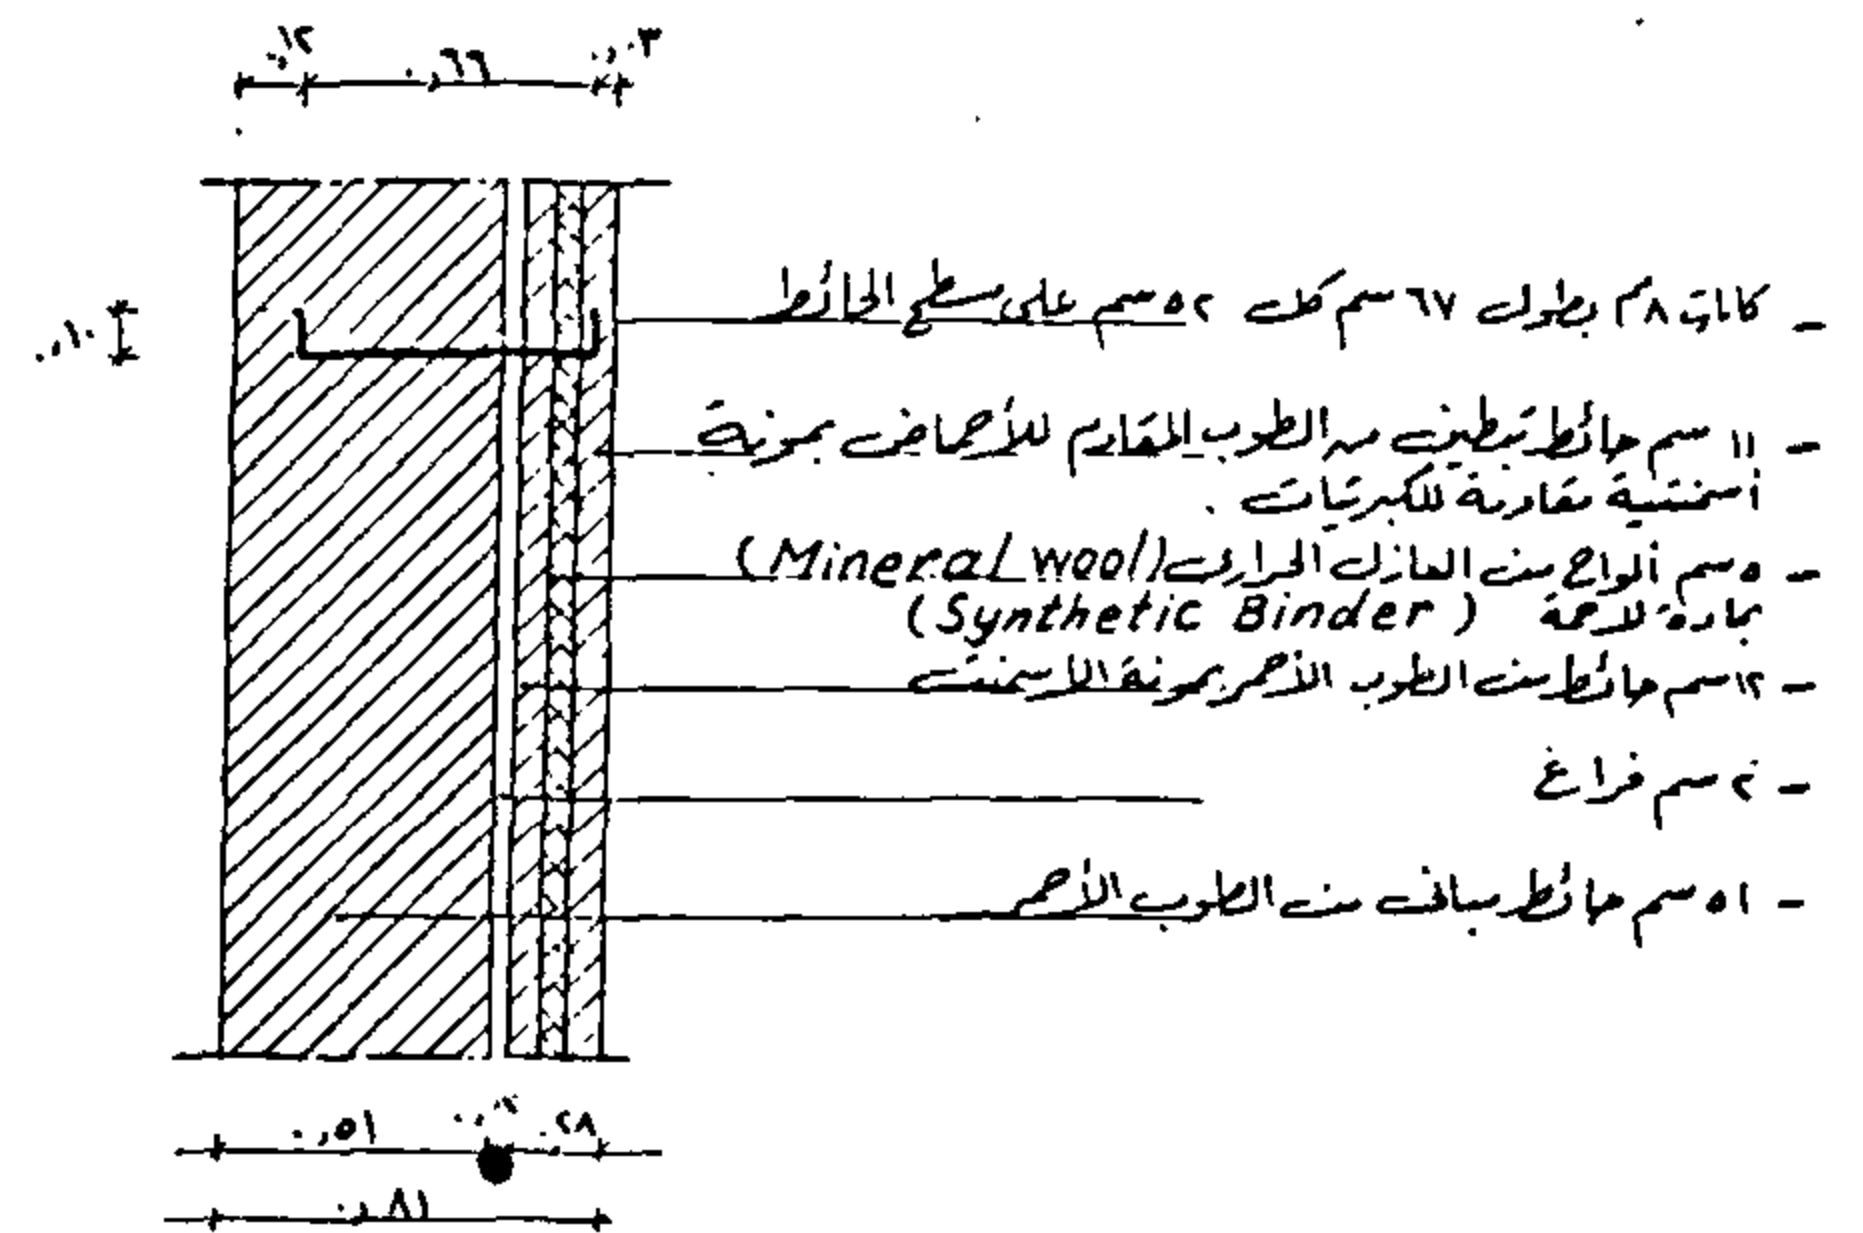 ٠,١٢ ٠,٦٦ ٠,٠٣
- كانات ٨م بطول ٦٧ سم كل ٥٢ سم على سطح الحائط
٠,١٠
- ١١ سم حائط تبطين من الطوب المقاوم للأحماض بمونة
أسمنتية مقاومة للكبريتات .
- ٥ سم ألواح من العازل الحرارى (Mineral wool)
بمادة لاحمة (Synthetic Binder)
- ١٢ سم حائط من الطوب الأحمر بمونة الاسمنت
- ٢ سم فراغ
- ٥١ سم حائط مبانى من الطوب الأحمر
٠,٥١ ٠,٠٢ ٠٢٨
٠,٨١